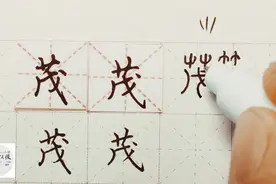 茂 茂 茂
茂 茂